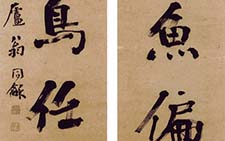 魚偏
鳥任
廬翁同龢